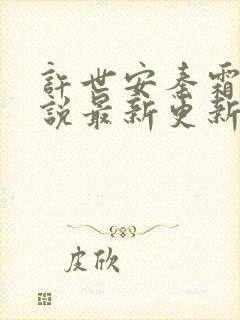 許世安秦霜
說最新更新
皮欣